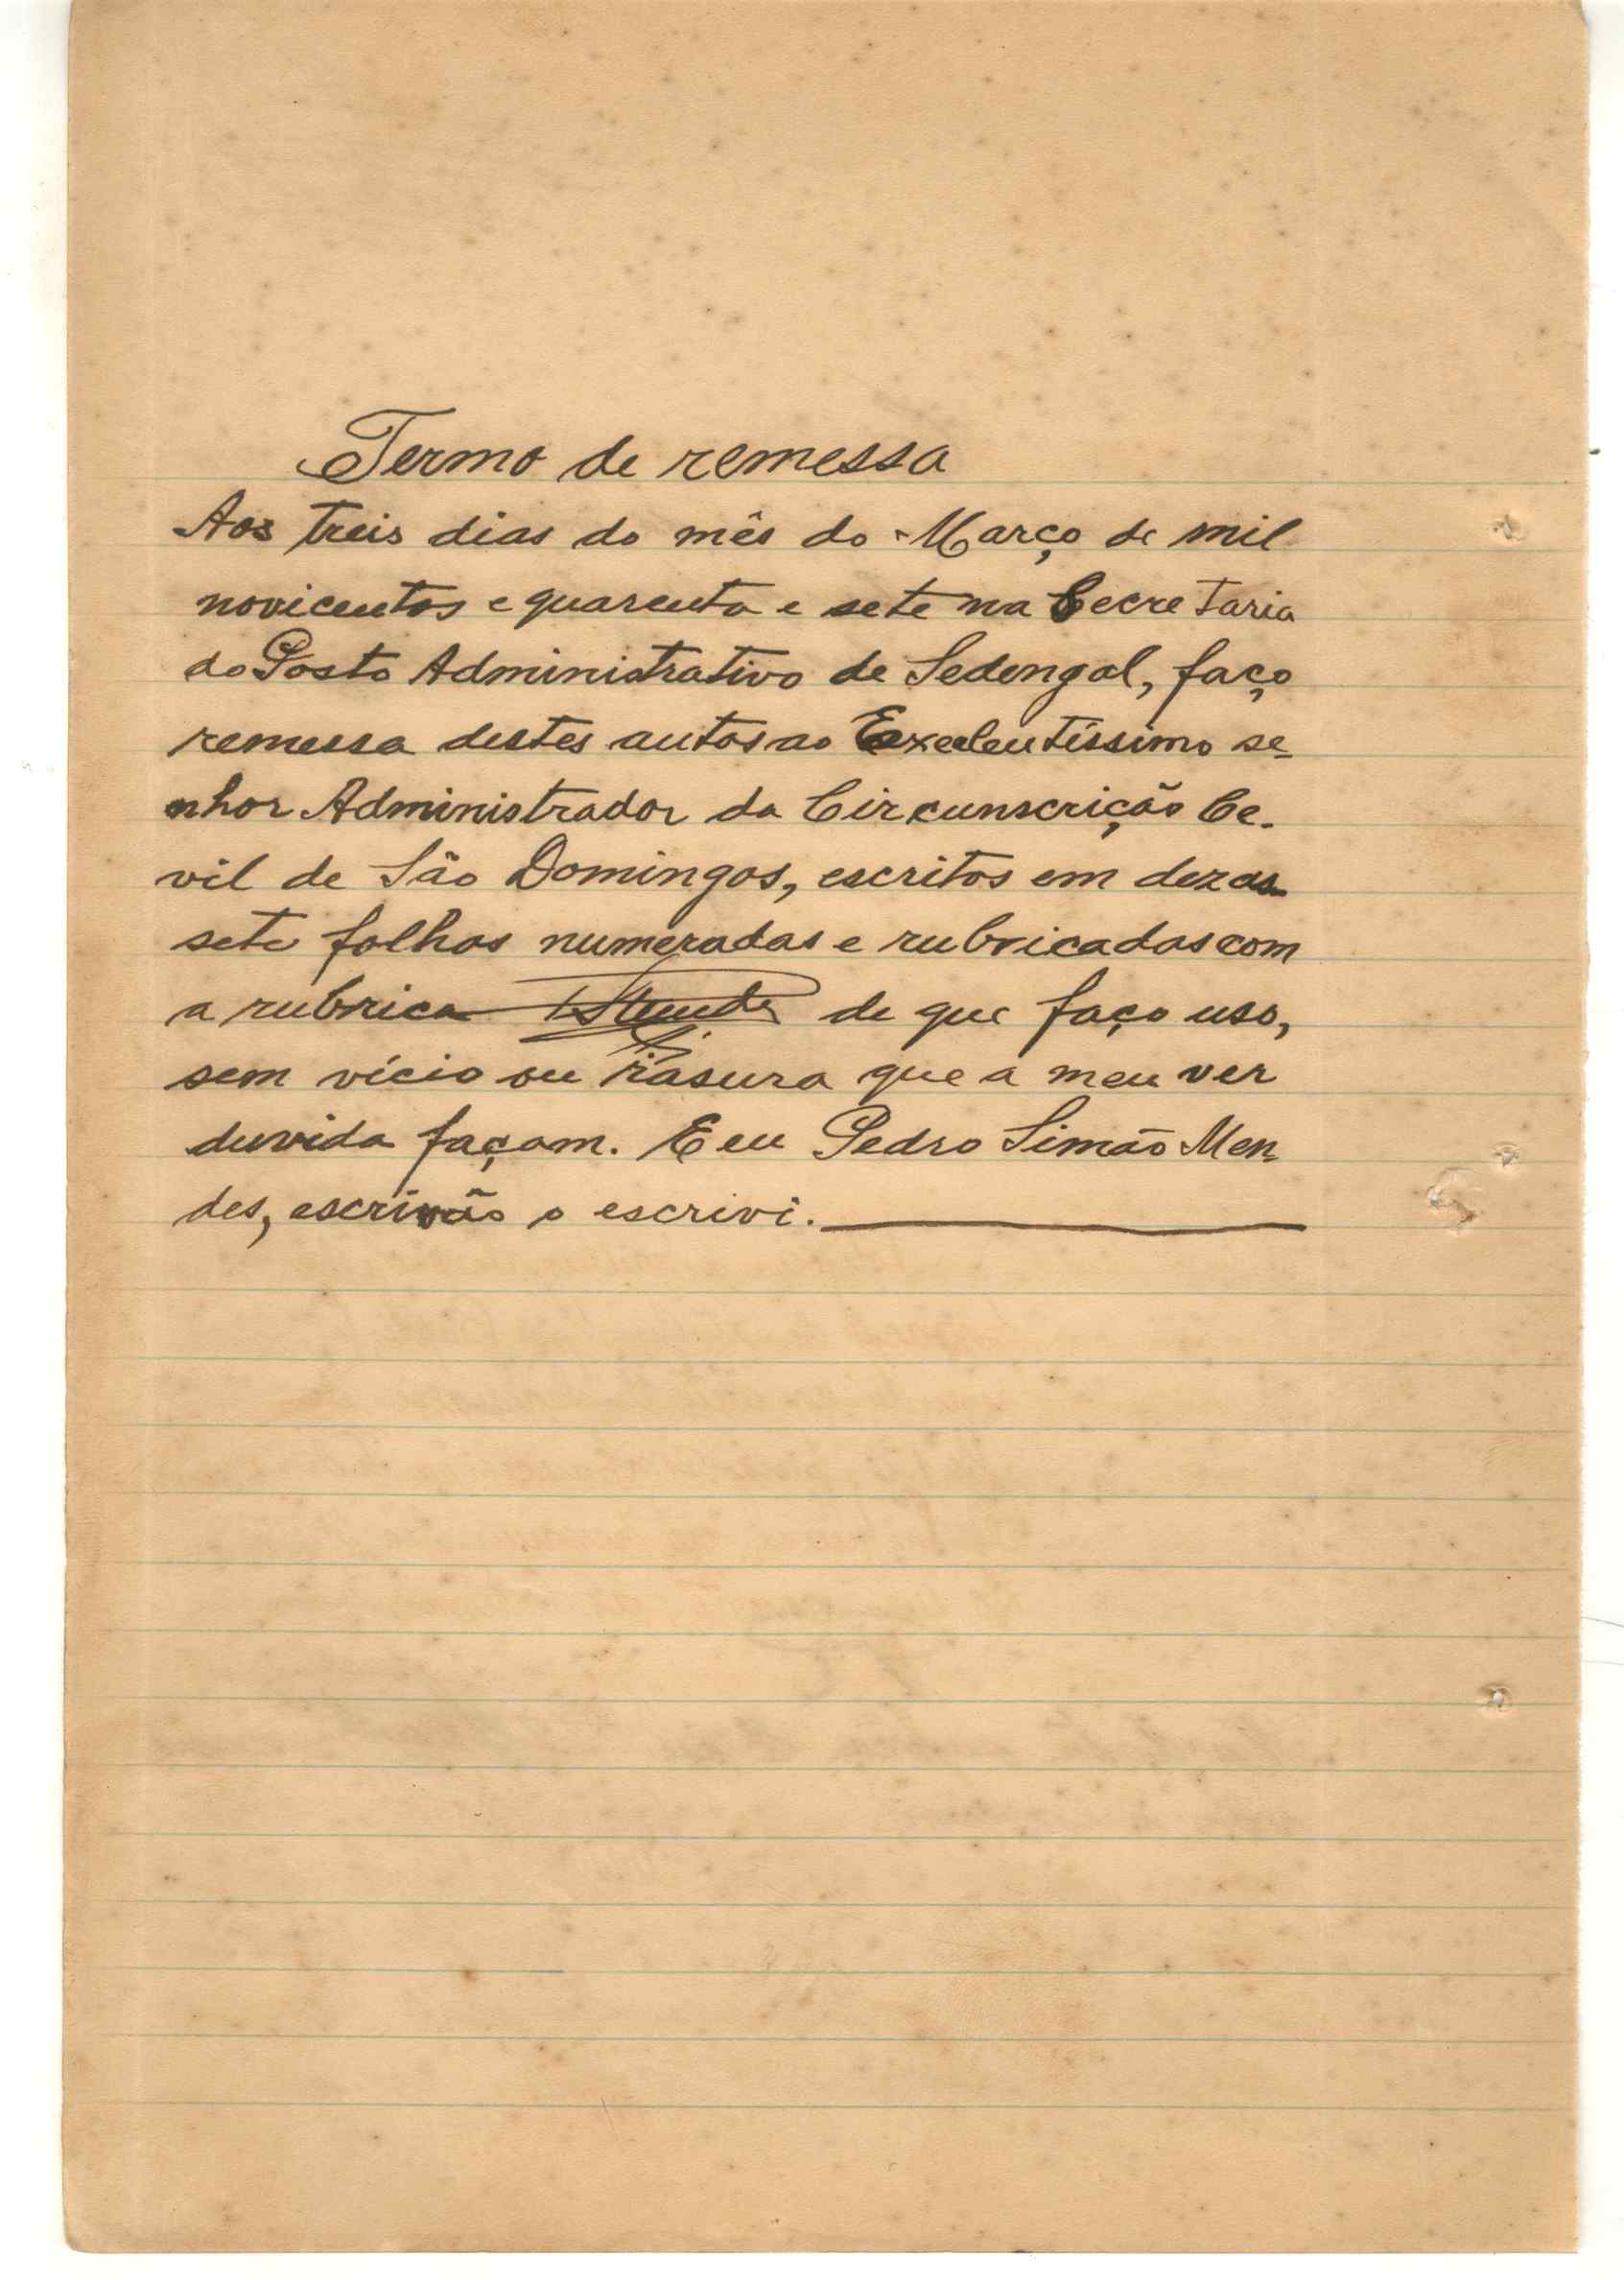 Termo de remessa
Aos treis dias do mês do Março de mil
novicentos e quarenta e sete na Secretaria
do Posto Administrativo de Sedengal, faço
remessa destes autos ao Execelentíssimo se-
nhor Administrador da Circunscrição Ce-
vil de São Domingos, escritos em dezas-
sete folhas numeradas e rubricadas com
a rubrica de que faço uso,
sem vício ou rasura que a meu ver
duvida façam. E eu Pedro Simão Men-
des, escrivão o escrivi.